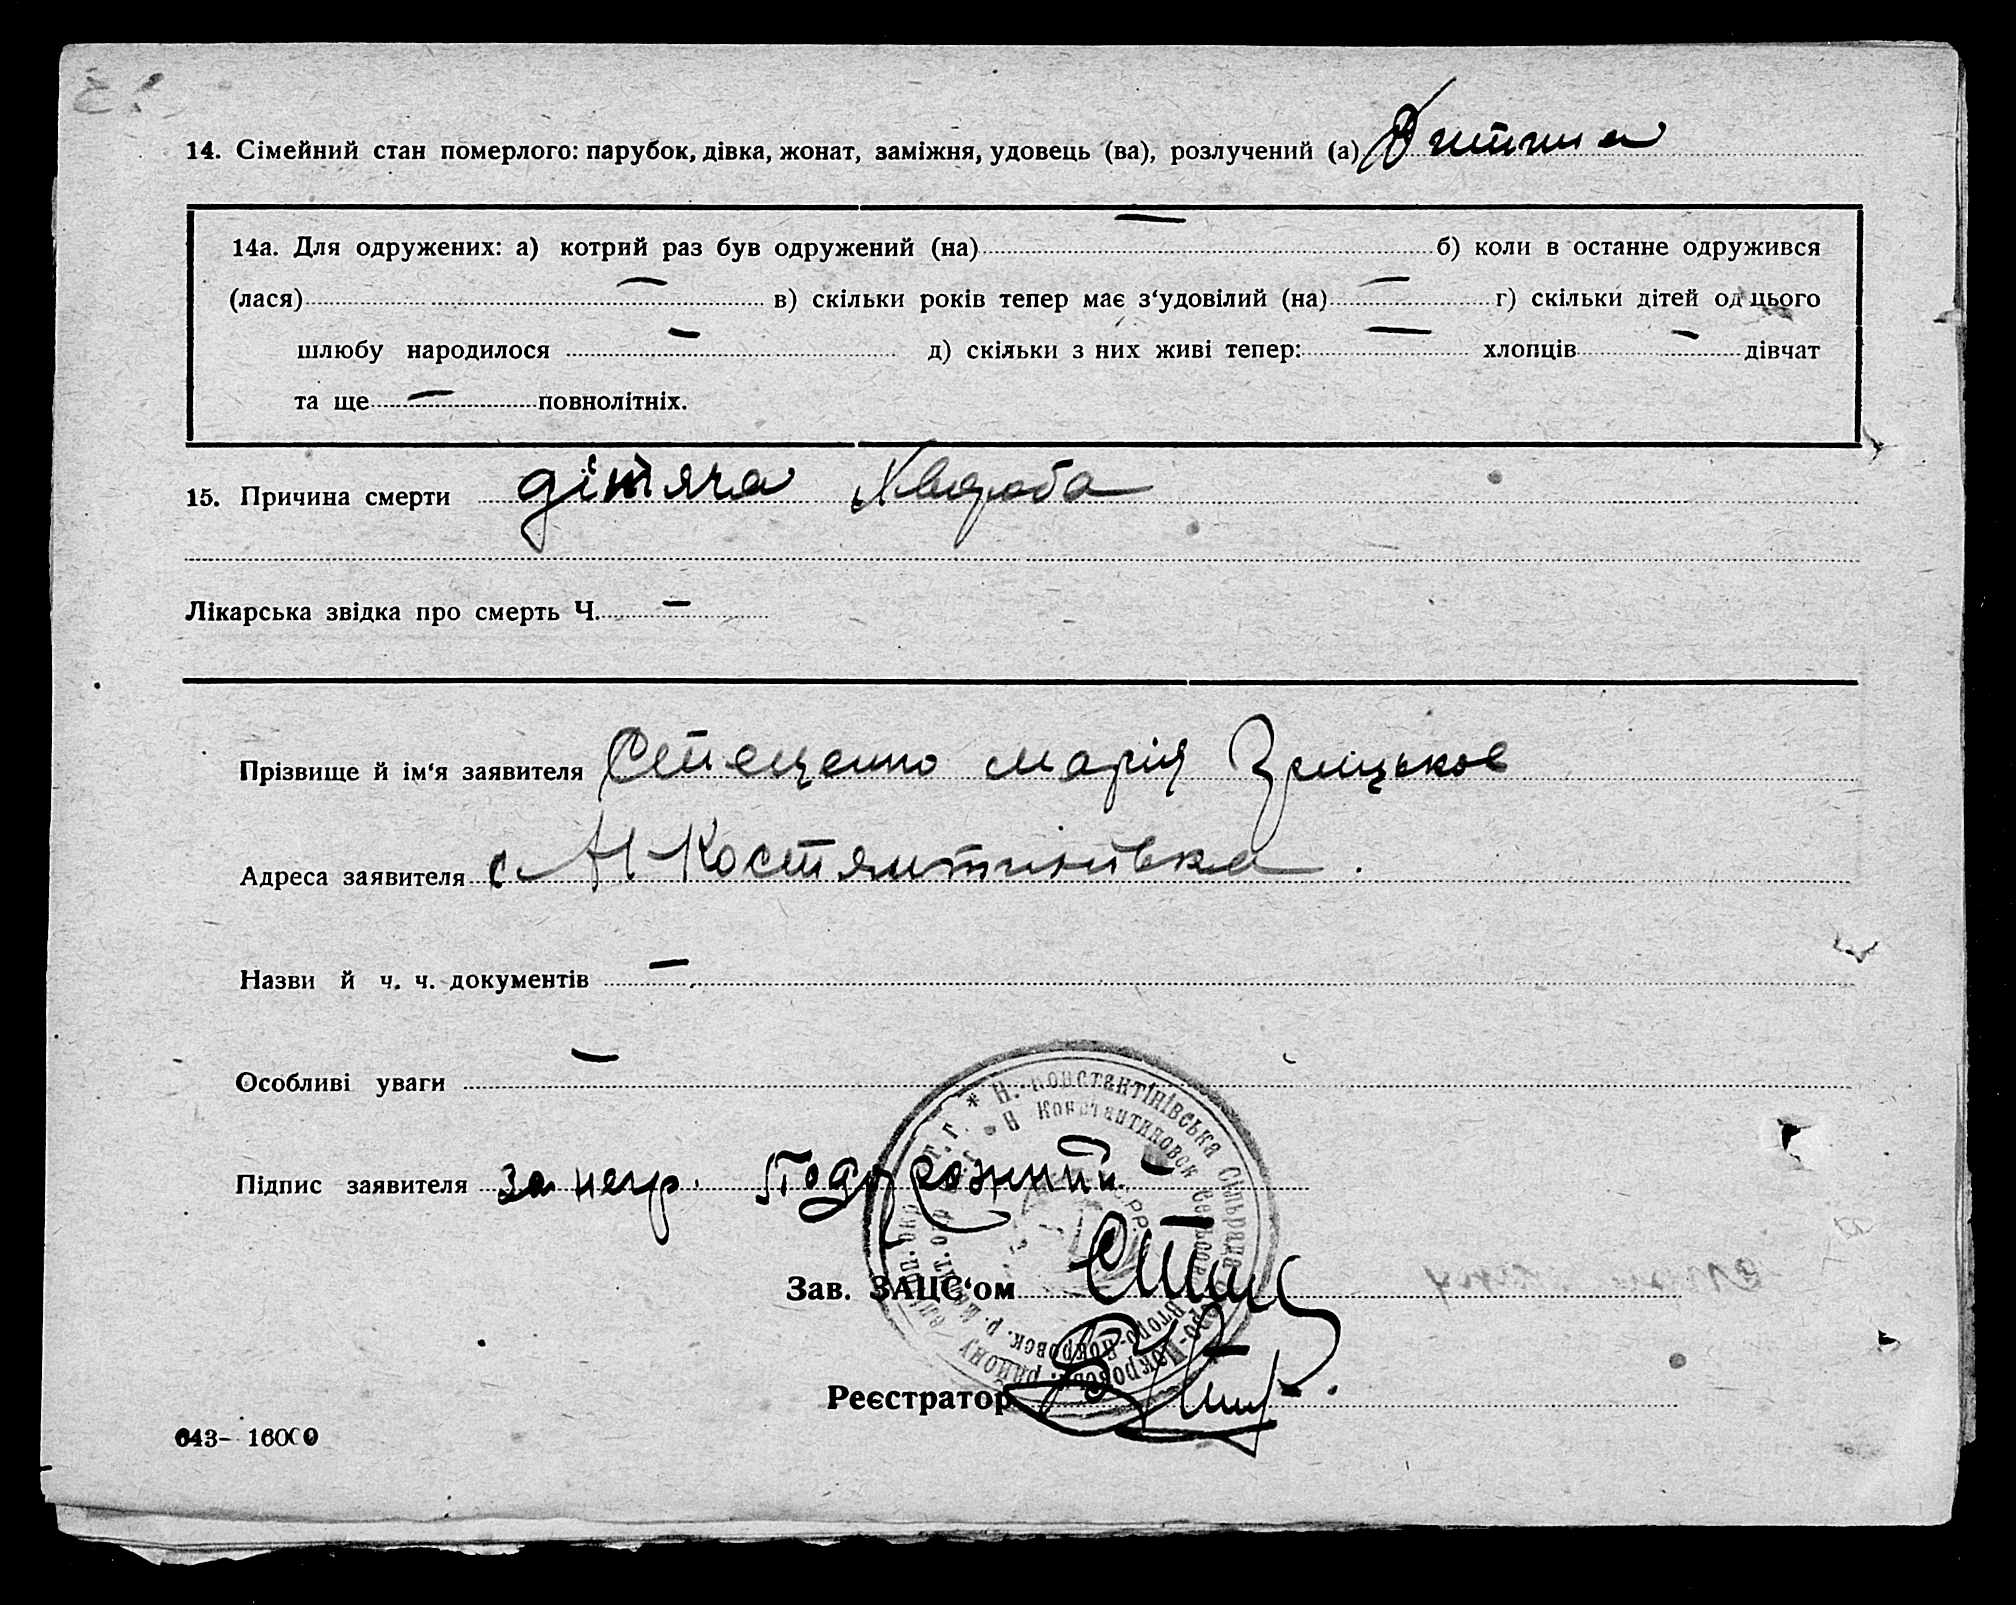 14. Сімейний стан померлого: парубок, дівка, жонат, заміжня, удовець (ва), розлучений (а) Дитина
14а. Для одружених: а) котрий раз був одружений (на) — б) коли в останне одружився
(лася) — в) скільки років тепер має з‘удовілий (на) — г) скільки дітей од цього
шлюбу народилося — д) скільки з них живі тепер: — хлопців — дівчат
та ще — повнолітніх.
15. Причина смерти дітяча хвороба
Лікарська звідка про смерть Ч. —
Прізвище й ім‘я заявителя Стеценко Марія
Адреса заявителя с Н Костянтинівка
Назви й ч. ч. документів —
Особливі уваги —
* Н. Константінівська Сільрада
Н Константиновск Сельсов.
Підпис заявителя за негр. Подорожний
Зав. ЗАЦС‘ом
Реєстратор
643- 16000